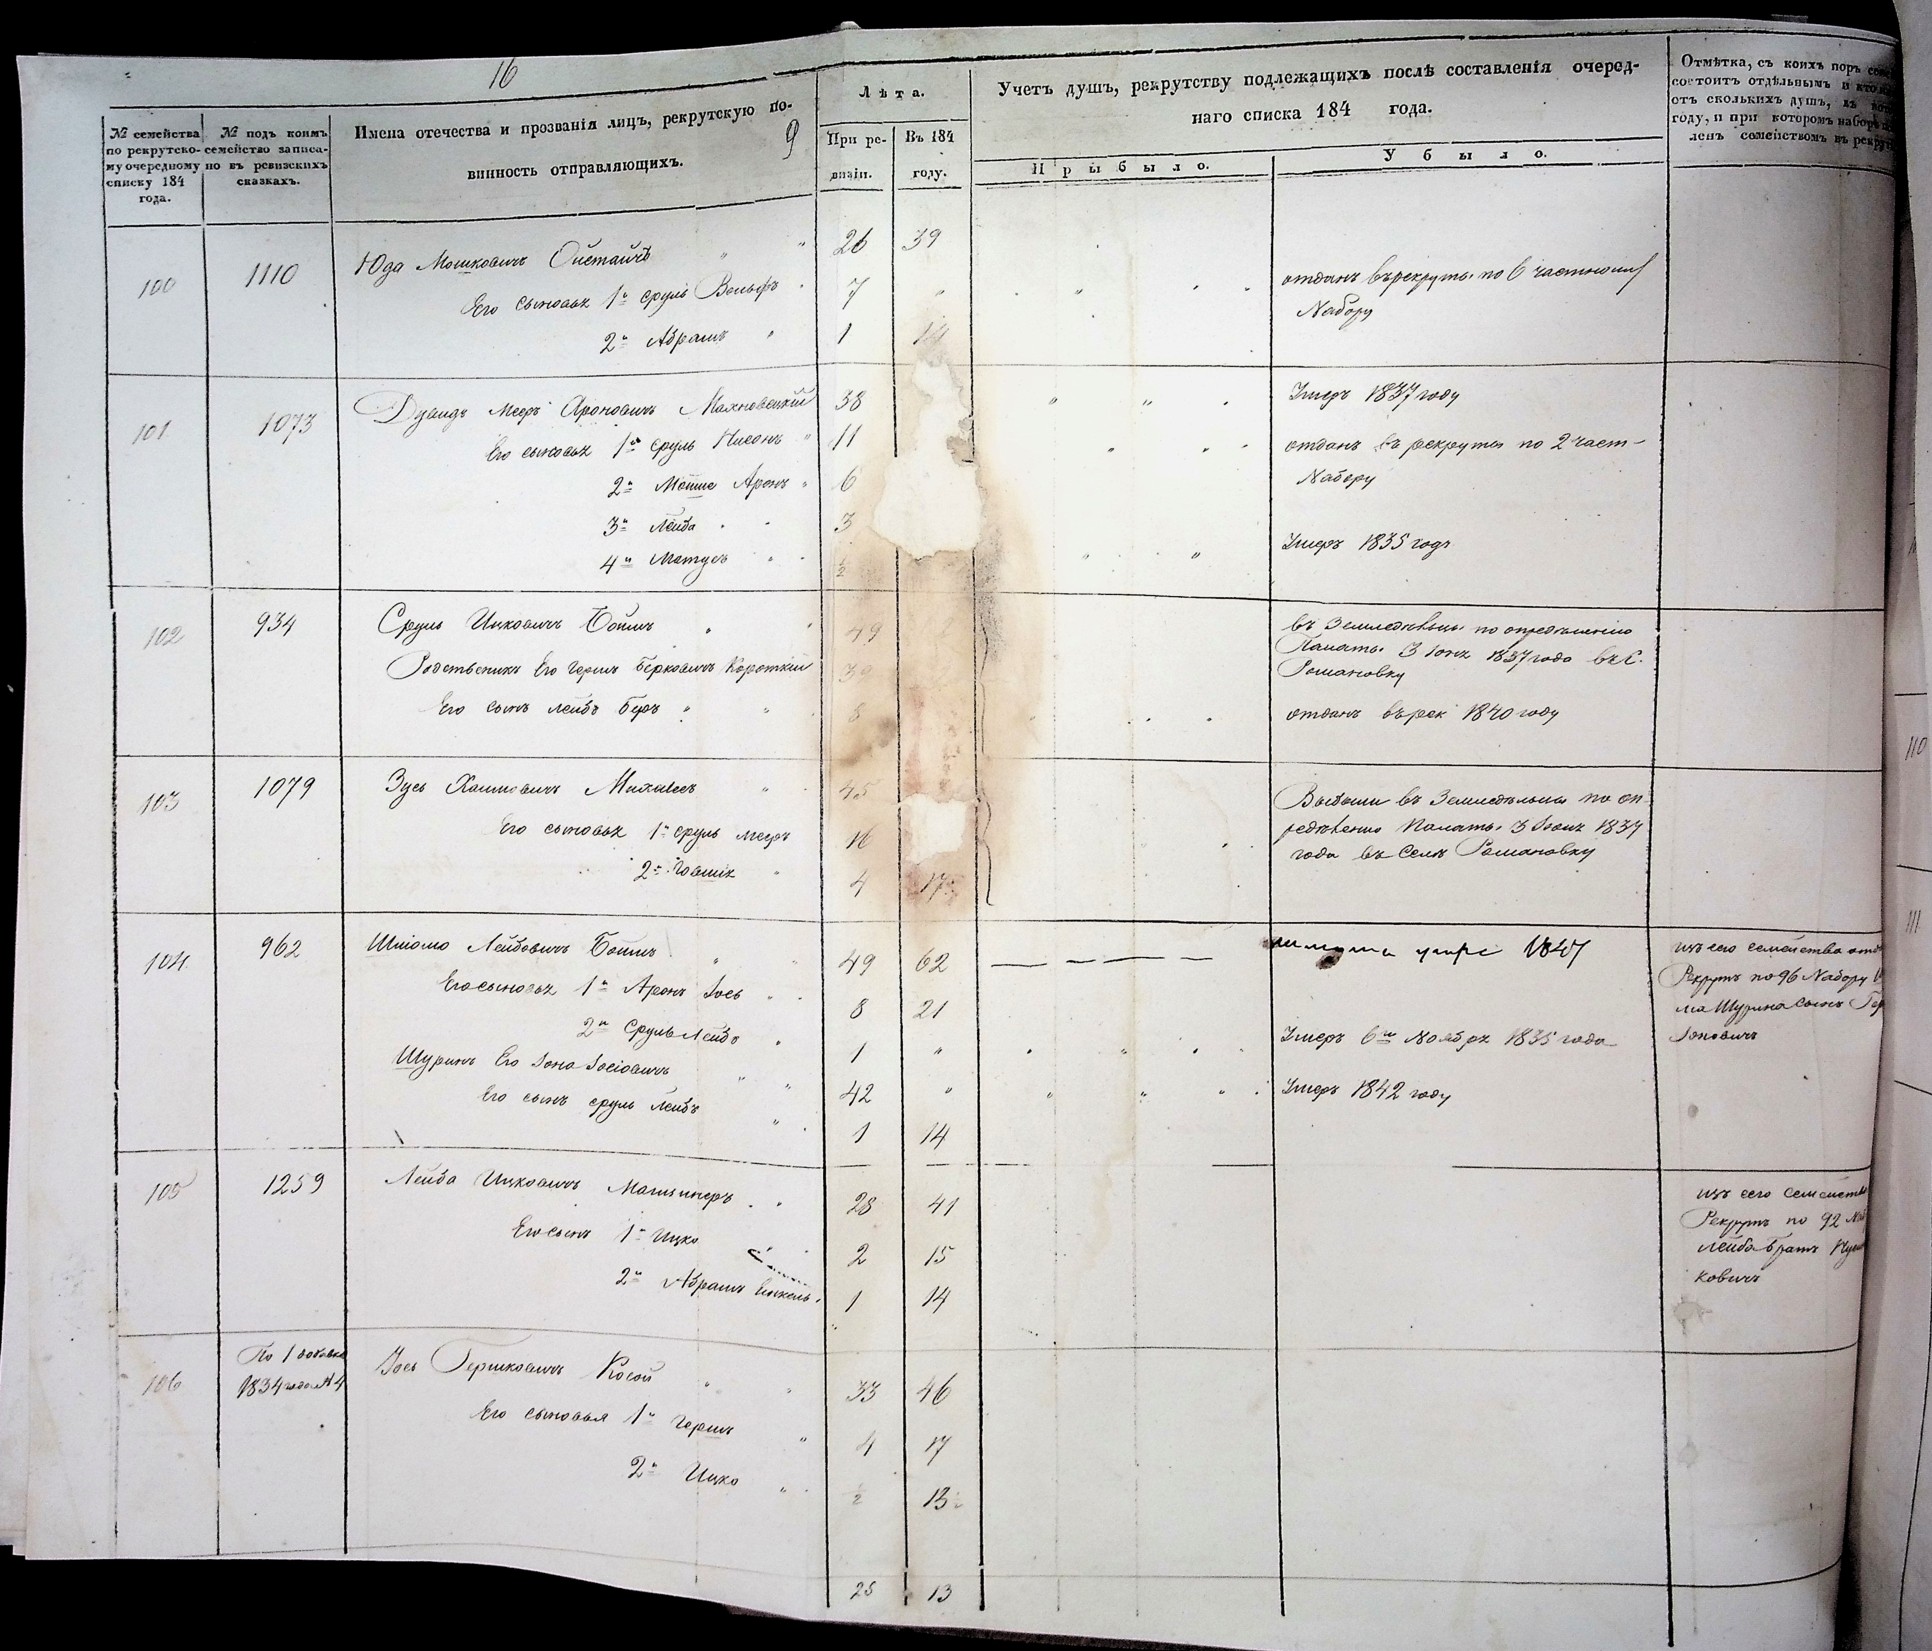 16
9
№ семейства по рекрутско-му очередному списку 184 года.
№ подъ коимъ семейство записа-но въ ревизскихъ сказкахъ.
Имена отечества и прозванія лицъ, рекрутскую по-
винность отправляющихъ.
Лѣта.
При ре-
визіи.
Въ 184
году.
Учетъ душъ, рекрутству подлежащихъ послѣ составленія очеред-
наго списка 184 года.
Прыбыло.
Убыло.
Отмѣтка, съ коихъ поръ
состоитъ отдѣльнымъ и
отъ сколькихъ душъ, въ
году, и при которомъ наборѣ
ленъ семействомъ въ
100 1110 Юда Мошковичъ 26 39
Его сыновья 1й сруль Вольфъ 7 отданъ въ рекруты по 6 частному
Набору
2й Абрамъ 1 14
101 1073 Дувидъ Мееръ Ароновичъ Махновецкій 38 Умеръ 1837 году
Его сыновья 1й сруль Нисонъ 11 отданъ въ рекруты по 2 част-
Набору
2й Мошие Аронъ 6
3й Лейба 3
4й Мотусъ ½ Умеръ 1835 года
102 934 Сруль Ицковичъ Боймъ 49 въ Земледѣльцы по опредѣленію
Палаты 3 Іюня 1837 года въ С.
Романовку
Родственикъ Его Гершъ Берковичъ Короткій 39
Его сынъ лейбъ Беръ 8 отданъ въ рек 1840 году
103 1079 Зусь Хаимовичъ 45 Выбыли въ Земледѣльцы по оп
Его сыновья 1й сруль мееръ 16 редѣленію Палаты 3 Іюня 1837
года въ Селѣ Романовку
2й 4 17
104 962 Шліомо Лейбовичъ Боймъ 49 62 умре 1847
изъ сего семейства
Рекрутъ по 96 Набору
Шурина сынъ
Іоновичъ
Его сыновья 1й Аронъ Іось 8 21
2й Сруль Лейбъ 1 Умеръ 6го Ноября 1835 года
Шуринъ Его Іона Іосіовичъ 42 Умеръ 1842 году
Его сынъ сруль Лейбъ 1 14
105 1259 Лейба Ицковичъ 28 41
изъ сего семейства
Рекрутъ по 92
лейба братъ
ковичъ
Его сынъ 1й Ицко 2 15
2й Абрамъ Янкель 1 14
106 По 1
1834 года № 4 Іось Гершковичъ Косой 33 46
Его сыновья 1й Гершъ 4 17
2й Ицко ½ 13
25 13
110
111